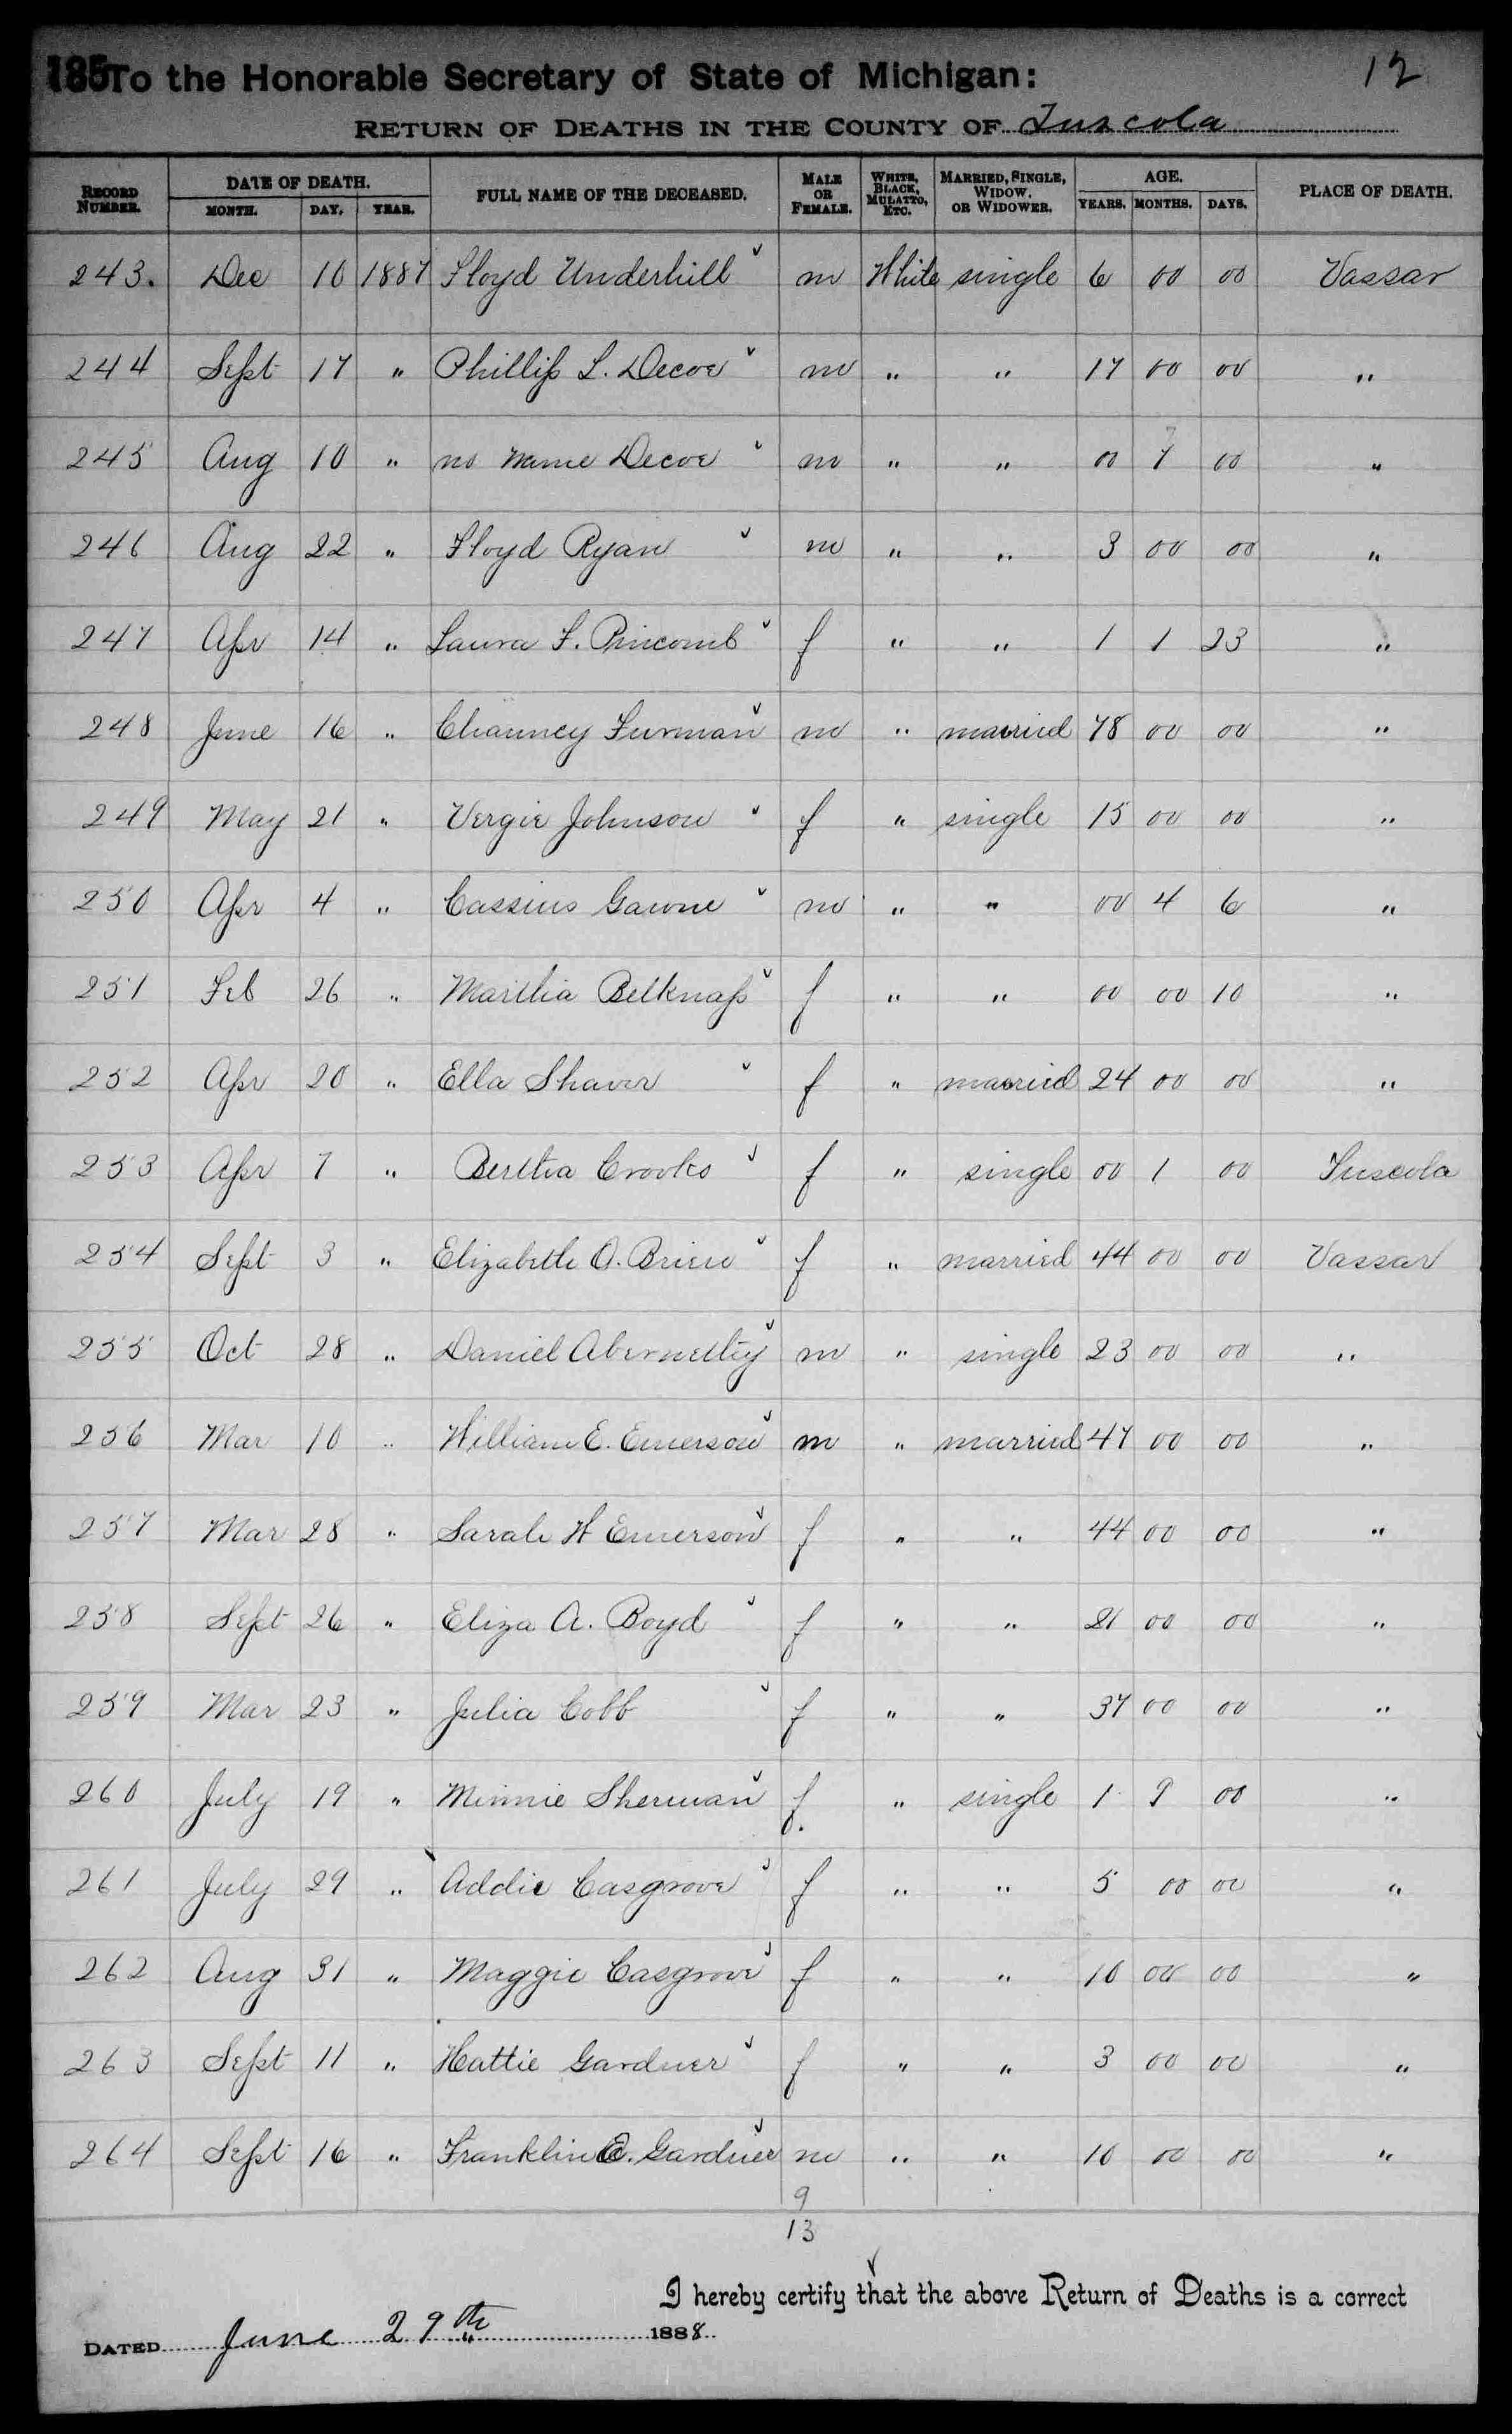 185 To the Honorable Secretary of State of Michigan: 12
RETURN OF DEATHS IN THE COUNTY OF Tuscola
RECORD NUMBER. DATE OF DEATH. MONTH. DAY. YEAR. FULL NAME OF THE DECEASED. MALE OR FEMALE. WHITE, BLACK, MULATTO, ETC. MARRIED, SINGLE, WIDOW, OR WIDOWER. AGE. YEARS. MONTHS. DAYS. PLACE OF DEATH.
243. Dec 10 1887 Floyd Underhill m White single 6 00 00 Vassar
244 Sept 17 " Phillip L. Decoe m " " 17 00 00 "
245 Aug 10 " no name Decoe m " " 00 7 00 "
246 Aug 22 " Floyd Ryan m " " 3 00 00 "
247 Apr 14 " Laura F. Pincomb f " " 1 1 23 "
248 June 16 " Chauncy Furman m " married 78 00 00 "
249 May 21 " Vergie Johnson f " single 15 00 00 "
250 Apr 4 " Cassius Gawne m " " 00 4 6 "
251 Feb 26 " Martha Belknap f " " 00 00 10 "
252 Apr 20 " Ella Shaver f " married 24 00 00 "
253 Apr 7 " Bertha Crooks f " single 00 1 00 Tuscola
254 Sept 3 " Elizabeth O. Brien f " married 44 00 00 Vassar
255 Oct 28 " Daniel Abernethy m " single 23 00 00 "
256 Mar 10 " William E. Emerson m " married 47 00 00 "
257 Mar 28 " Sarah H Emerson f " " 44 00 00 "
258 Sept 26 " Eliza A. Boyd f " " 21 00 00 "
259 Mar 23 " Julia Cobb f " " 37 00 00 "
260 July 19 " Minnie Sherman f. " single 1 9 00 "
261 July 29 " Addie Casgrove f " " 5 00 00 "
262 Aug 31 " Maggie Casgrove f " " 10 00 00 "
263 Sept 11 " Hattie Gardner f " " 3 00 00 "
264 Sept 16 " Franklin E. Gardner m " " 10 00 00 "
9
13
I hereby certify that the above Return of Deaths is a correct
DATED June 29th 1888